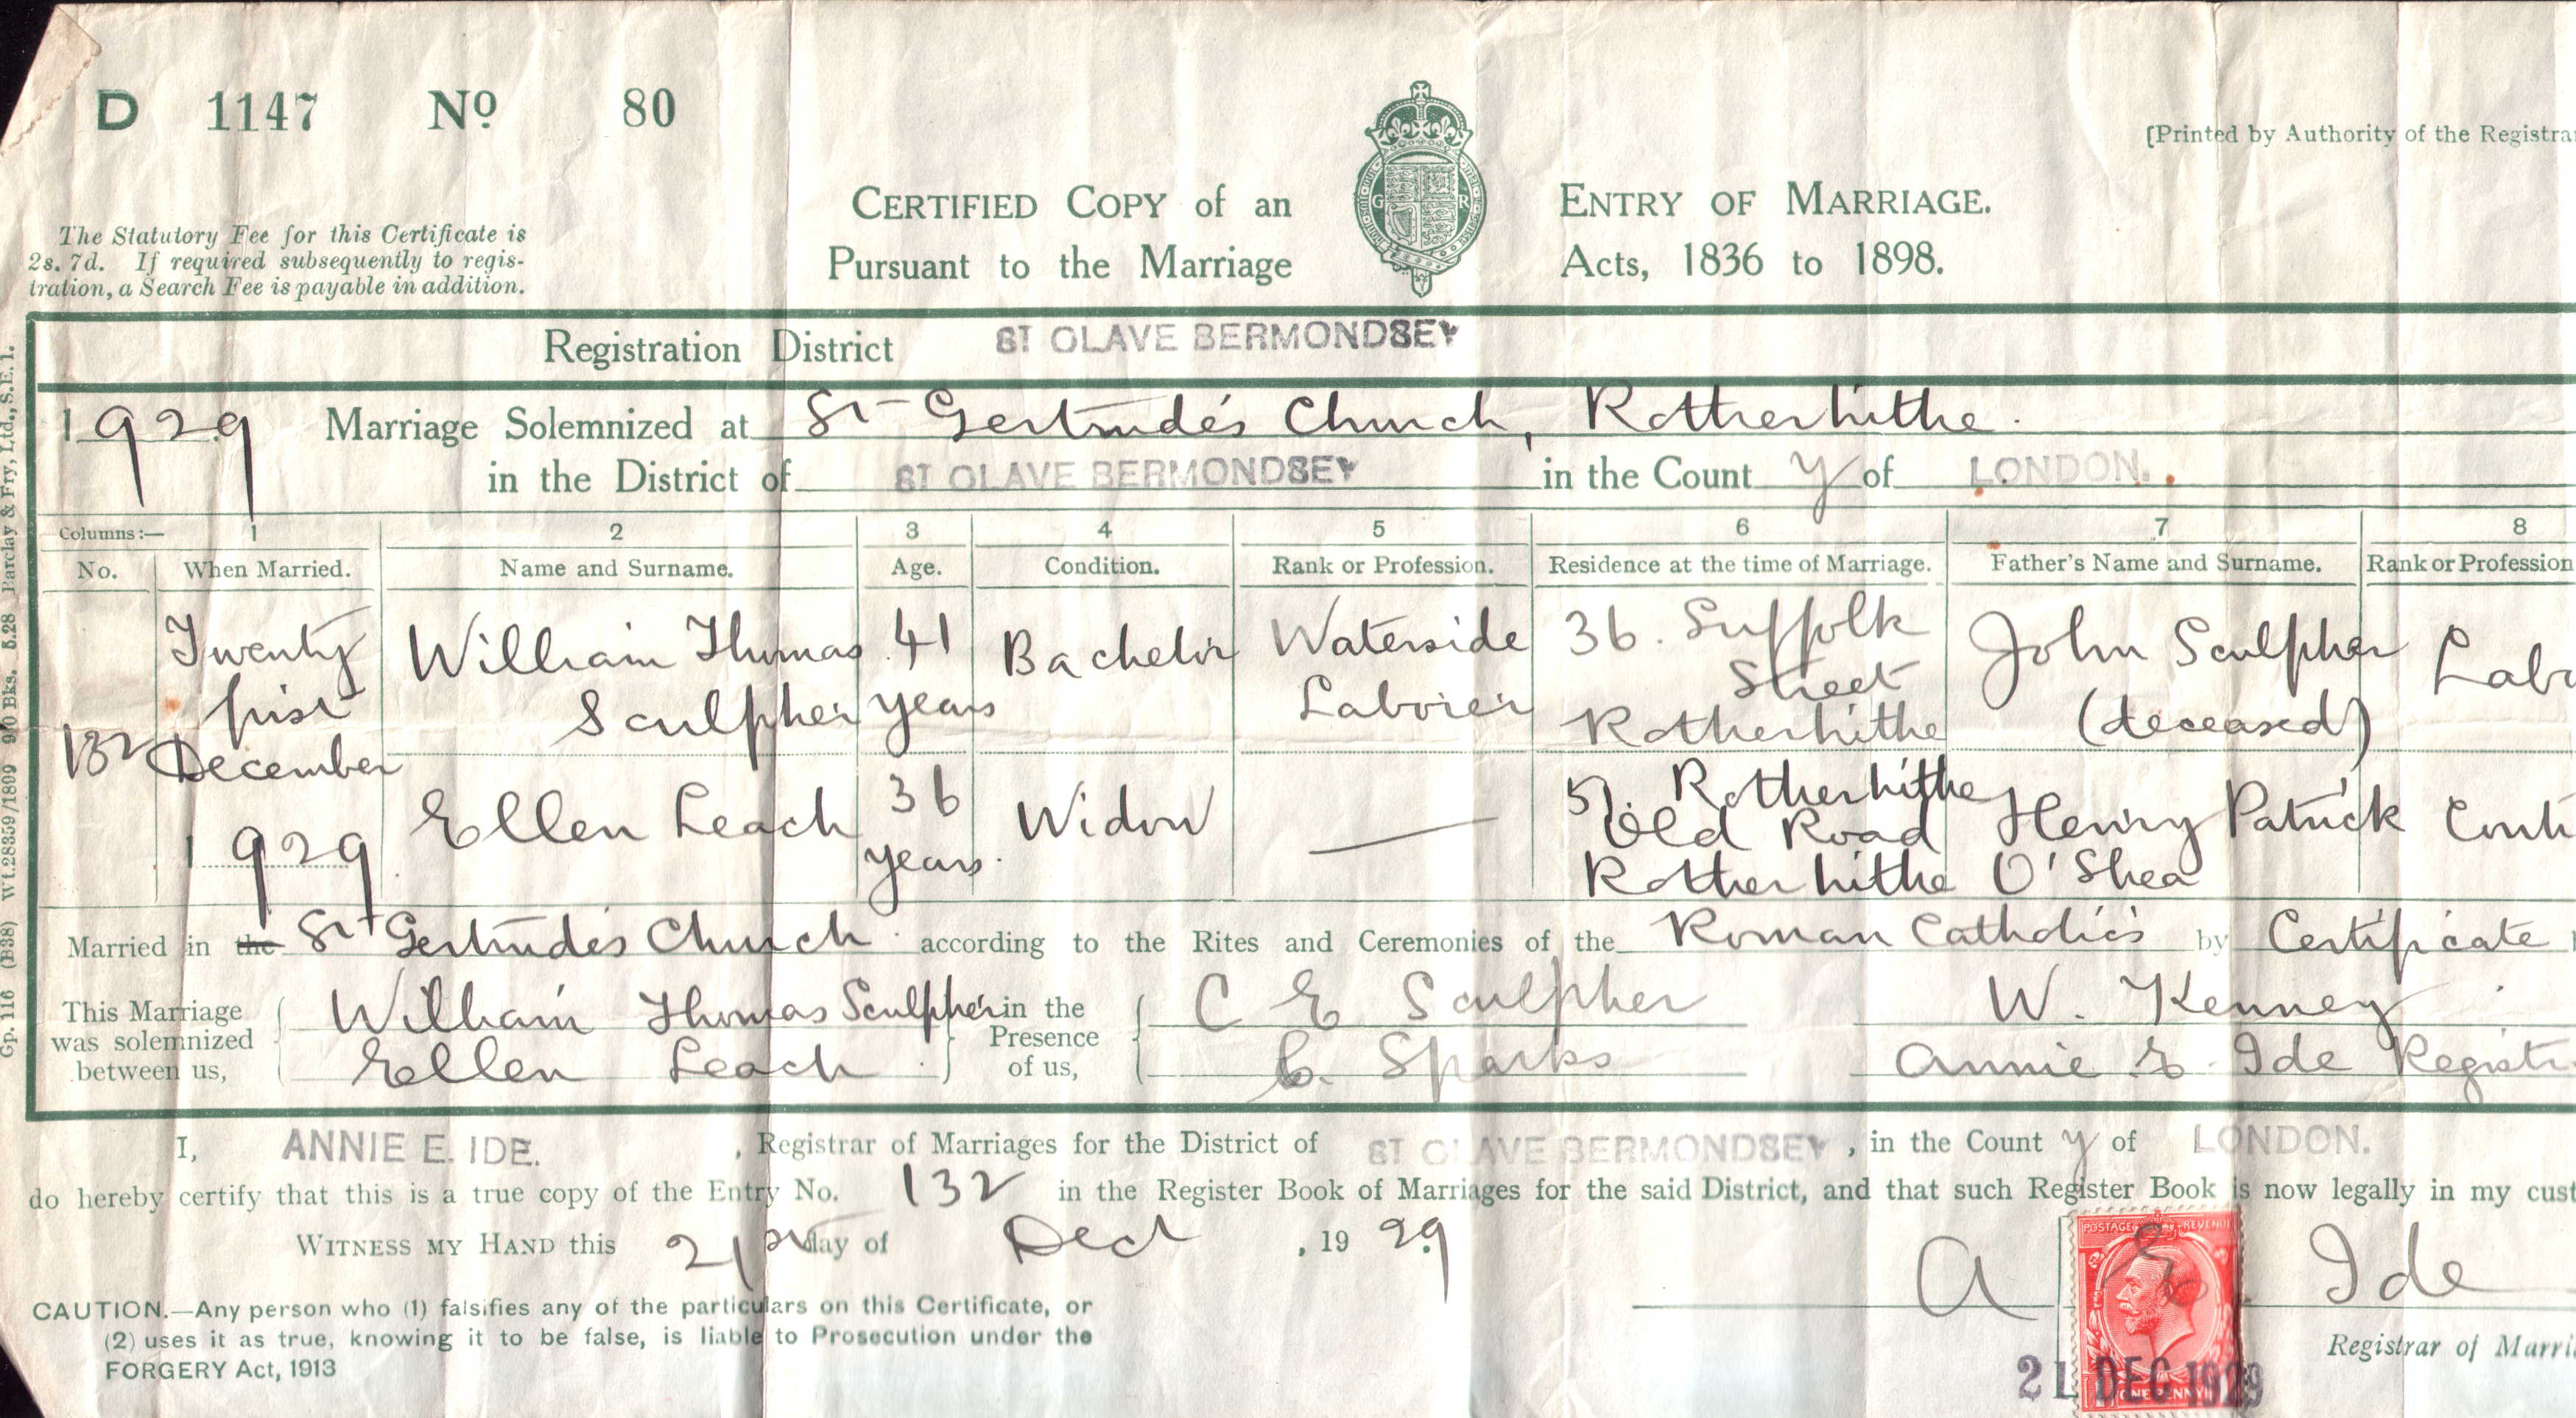 D 1147 Nº 80
[Printed by Authority of the Registra
CERTIFIED COPY of an ENTRY OF MARRIAGE.
Pursuant to the Marriage Acts, 1836 to 1898.
G R
The Statutory Fee for this Certificate is
2s. 7d. If required subsequently to regis-
tration, a Search Fee is payable in addition.
Gp. 116 (B38) Wt.28359/1809 900 Bks. 5.28 Barclay & Fry, Ltd., S.E.1.
Registration District ST OLAVE BERMONDSEY
1929 Marriage Solemnized at St Gertrude's Church, Rotherhithe.
in the District of ST OLAVE BERMONDSEY in the County of LONDON.
Columns:— 1 2 3 4 5 6 7 8
No. When Married. Name and Surname. Age. Condition. Rank or Profession. Residence at the time of Marriage. Father's Name and Surname. Rank or Profession
132 Twenty first December 1929
William Thomas Sculpher 41 years Bachelor Waterside Labourer 36. Suffolk Street Rotherhithe John Sculpher (deceased) Labo
Ellen Leach 36 years. Widow — Rotherhithe Old Road Rotherhithe Henry Patrick O'Shea
Married in the St Gertrude's Church according to the Rites and Ceremonies of the Roman Catholics by Certificate
This Marriage
was solemnized
between us,
William Thomas Sculpher
Ellen Leach
in the
Presence
of us,
C E Sculpher
C. Sparks
W. Kenney
Annie E. Ide Registr
I, ANNIE E. IDE. , Registrar of Marriages for the District of ST OLAVE BERMONDSEY , in the County of LONDON.
do hereby certify that this is a true copy of the Entry No. 132 in the Register Book of Marriages for the said District, and that such Register Book is now legally in my cust
WITNESS MY HAND this 21st day of Dec , 1929
A E Ide
Registrar of Marri
POSTAGE REVENUE
ONE PENNY
21 DEC 1929
CAUTION.—Any person who (1) falsifies any of the particulars on this Certificate, or
(2) uses it as true, knowing it to be false, is liable to Prosecution under the
FORGERY Act, 1913